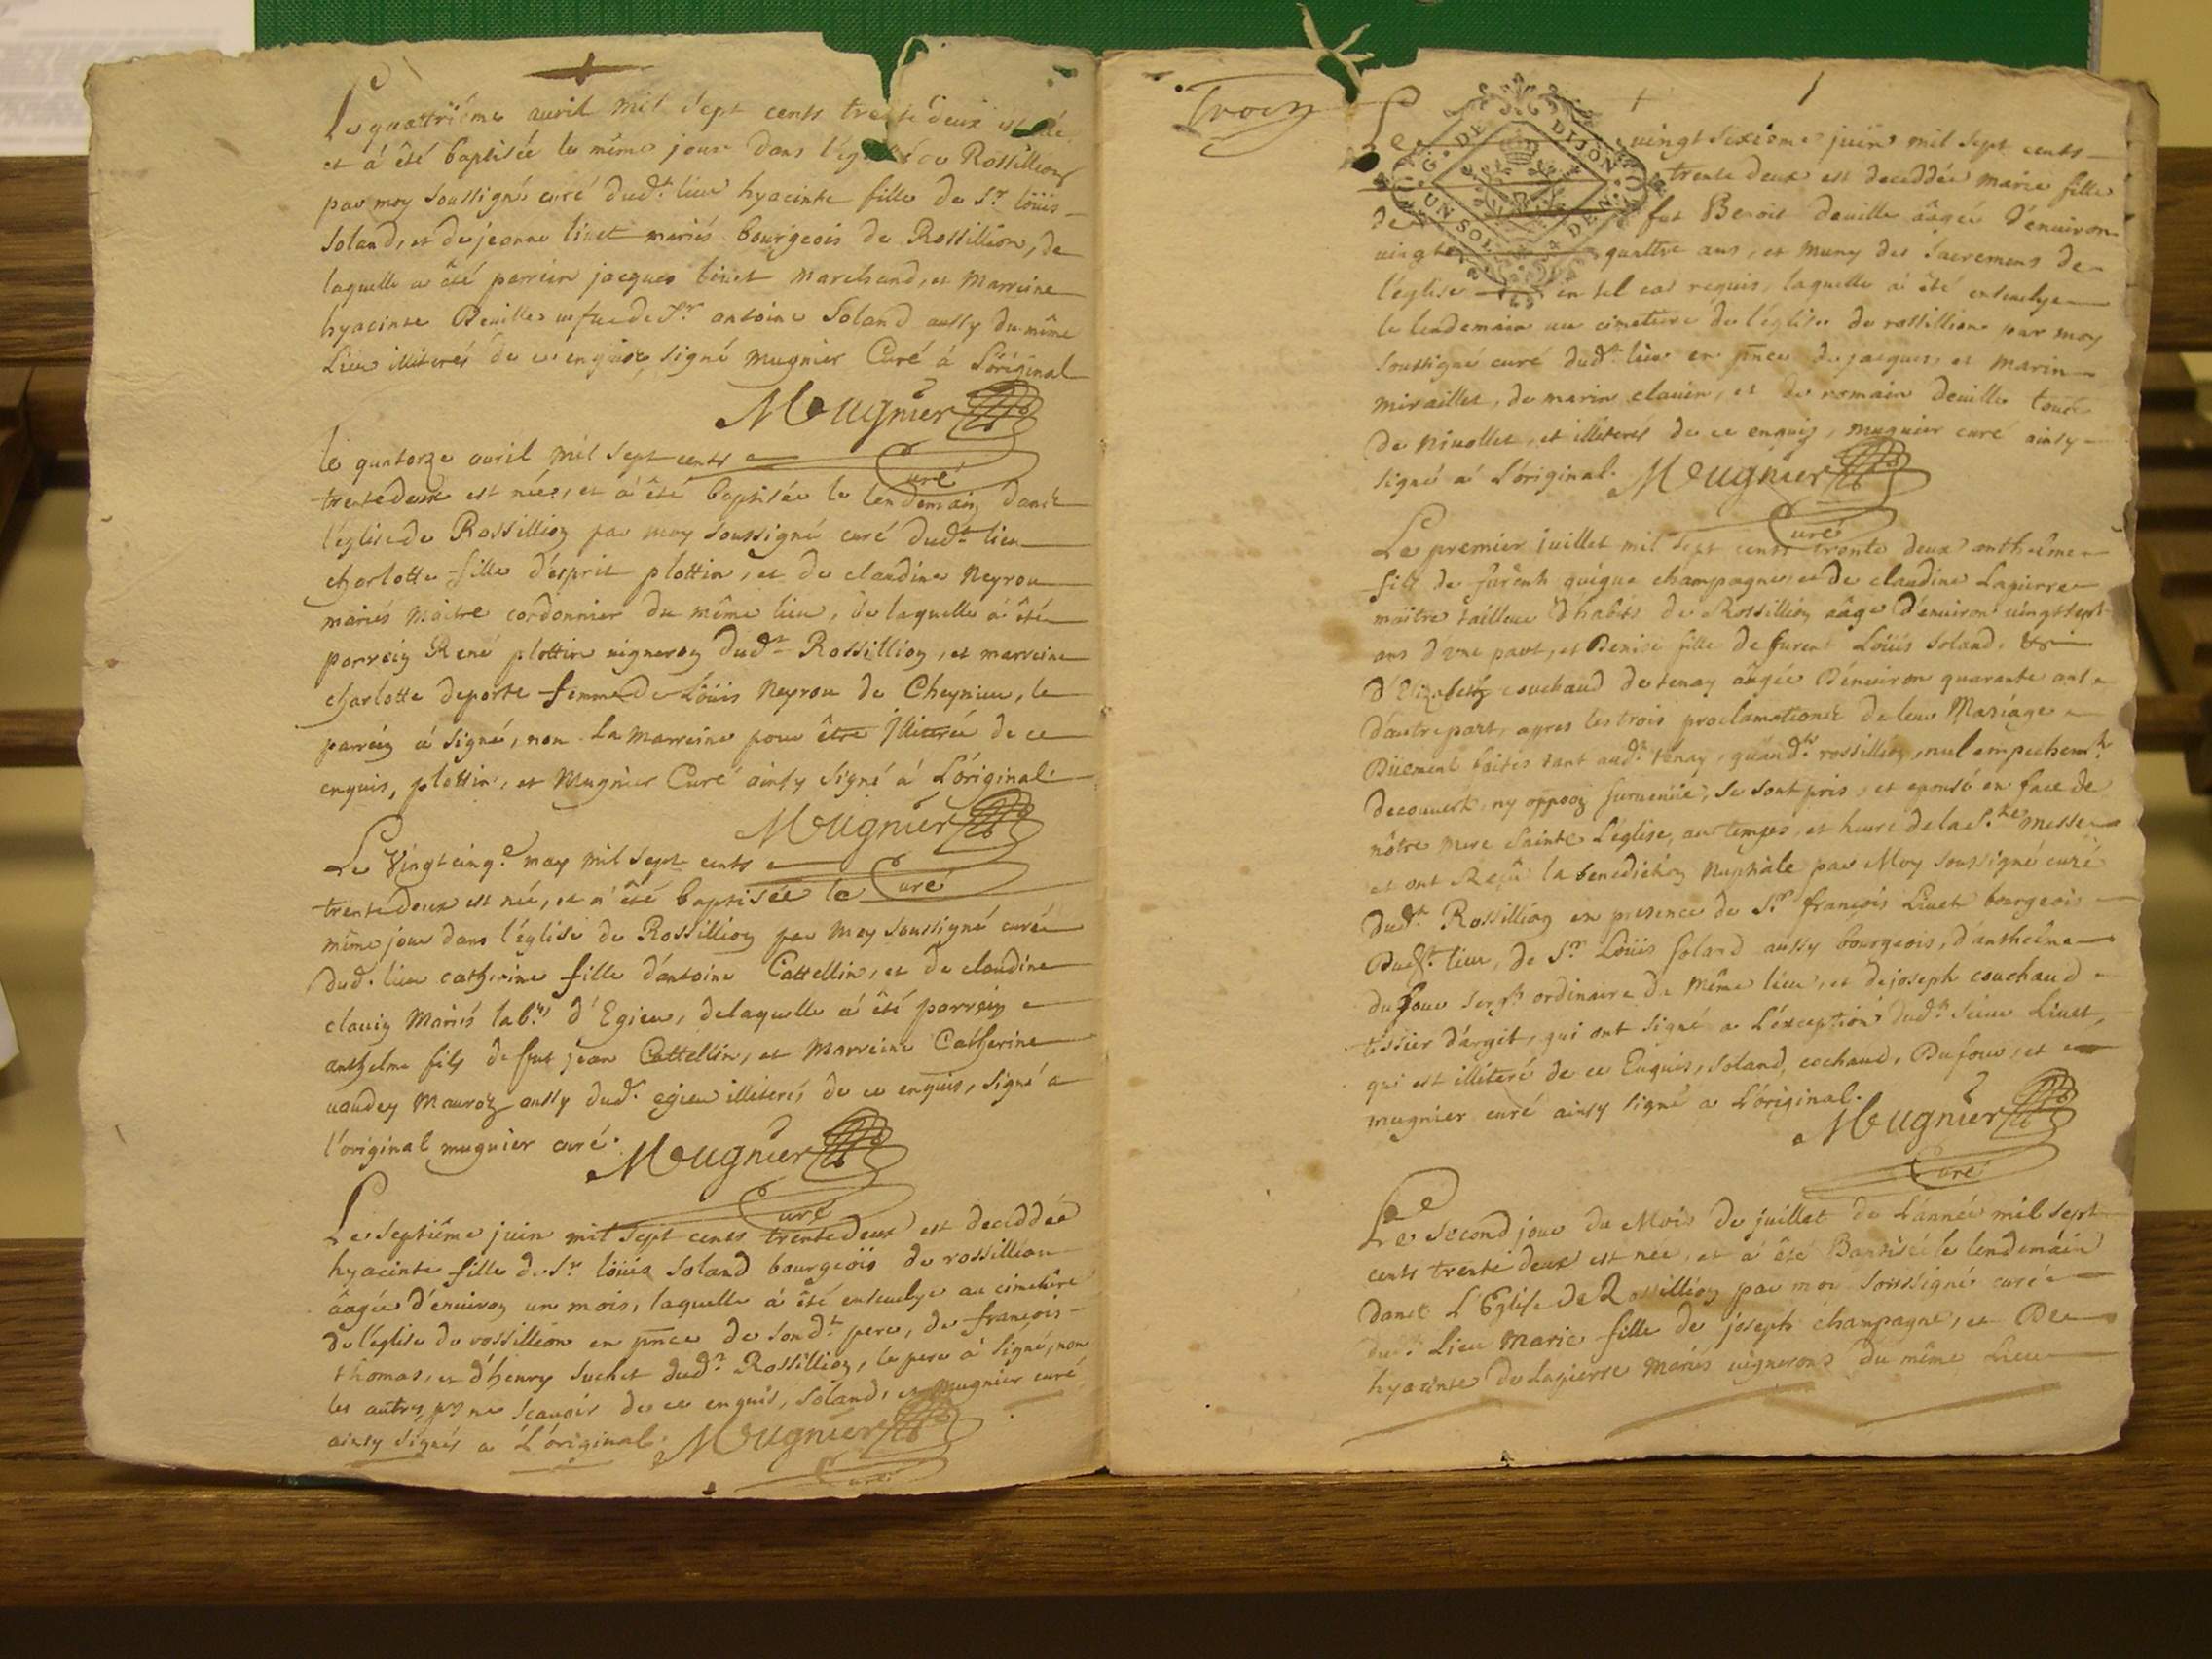 Le quattriéme auril mil sept cents trente deux est née
et à êté baptisée le même jour dans l'église de Rossillion
par moy soussigné curé dud.t lieu hyacinte fille de S.r loüis
Soland, et de jeanne liuet mariés bourgeois de Rossillion, de
laquelle a êté parrein jacques liuet marchand, et Marreine
hyacinte Deuille uefue de S.r antoine Soland aussy du même
Lieu illiterés de ce enquis, signé mugnier Curé à L'original
Mugnier
Curé
le quatorze auril mil sept cents
trente deux est née, et à êté baptisée le lendemain dans
l'église de Rossillion par moy soussigné curé dud.t lieu
charlotte fille d'esprit plottin, et de claudine Neyrou
mariés maitre cordonnier du même lieu, de laquelle à êté
parrein René plottin uigneron dud.t Rossillion, et marreine
charlotte deporte femme de Loüis Neyrou de Cheynieu, le
parrein à signé, non La marreine pour être illiterée de ce
enquis, plottin, et Mugnier Curé ainsy signé à L'original
Mugnier
Curé
Le Vingt cinq.e may mil sept cents
trente deux est née, et à êté baptisée le
même jour dans l'église de Rossillion par moy soussigné curé
dud. lieu catherine fille d'antoine Cattellin, et de claudine
clauin Mariés lab.rs d'Egieu, de laquelle à êté parrein
anthelme fils de feut jean Cattellin, et Marreine Catherine
aussy dud.t egieu illiterés de ce enquis, signé a
l'original mugnier curé.
Mugnier
Curé
Le septiême juin mil sept cents trente deux est deceddée
hyacinte fille de S.r loüis Soland bourgeois de rossillion
âagée d'enuiron un mois, laquelle à êté enseuelye au cimetiere
de l'église de rossillion en pnce de sond.t pere, de francois
thomas, et d'henry suchet dud.t Rossillion, le pere à signé, non
les autres pr ne scauoir de ce enquis, Soland, et Mugnier curé
ainsy signés a L'original. Mugnier
Curé
1
G. DE DIJON
UN SOL 4 DEN.
Le uingt sixiême juin mil sept cents
trente deux est deceddée marie fille
de fut Benoit deuille âagée d'enuiron
uingt quattre ans, et muny des sacremens de
l'église en tel cas requis, laquelle à êté enseuelye
le lendemain au cimetiere de l'église de rossillion par moy
soussigné curé dud.t lieu en pnce de jacques, et marin
miraillet, de marin clauin, et de romain deuille tous
de niuollet, et illiterés de ce enquis, mugnier curé ainsy
signé a L'original. Mugnier
Curé
Le premier juillet mil sept cents trente deux anthelme
fils de champagne, et de claudine Lapierre
maitre tailleur d'habits de Rossillion âage d'enuiron uingt sept
ans d'une part, et Denise fille de furent Loüis Soland, &
d'Elizabeth couchaud de tenay âagée d'enuiron quarante ans
d'autre part, apres les trois proclamations de leur Mariage
Düement faites tant aud.t tenay, quaud.t rossillion, nul empechem.t
decouuert, ny oppoon suruenüe, se sont pris, et epousé en face de
nôtre mere Sainte L'église, au temps, et heure de la S.te messe
et ont Reçû la benediction Nuptiale par Moy soussigné curé
dud.t Rossillion en presence de S.r françois Liuet bourgeois
Dud.t lieu, de S.r Loüis Soland aussy bourgeois, d'anthelme
dufour serg.t ordinaire du même lieu, et de joseph couchaud
tissier d'argit, qui ont signé a L'exception dud.t sieur Liuet,
qui est illiteré de ce Enquis, Soland, cochaud, Dufour, et
mugnier curé ainsy signé a L'original.
Mugnier
Curé
Le second jour du Mois de juillet de L'année mil sept
cents trente deux est née, et à êté Baptisée le lendemain
dans L'Eglise de Rossillion par moy soussigné curé
dud.t Lieu Marie fille de joseph champagne, et De
hyacinte de Lapierre Mariés uignerons du même Lieu